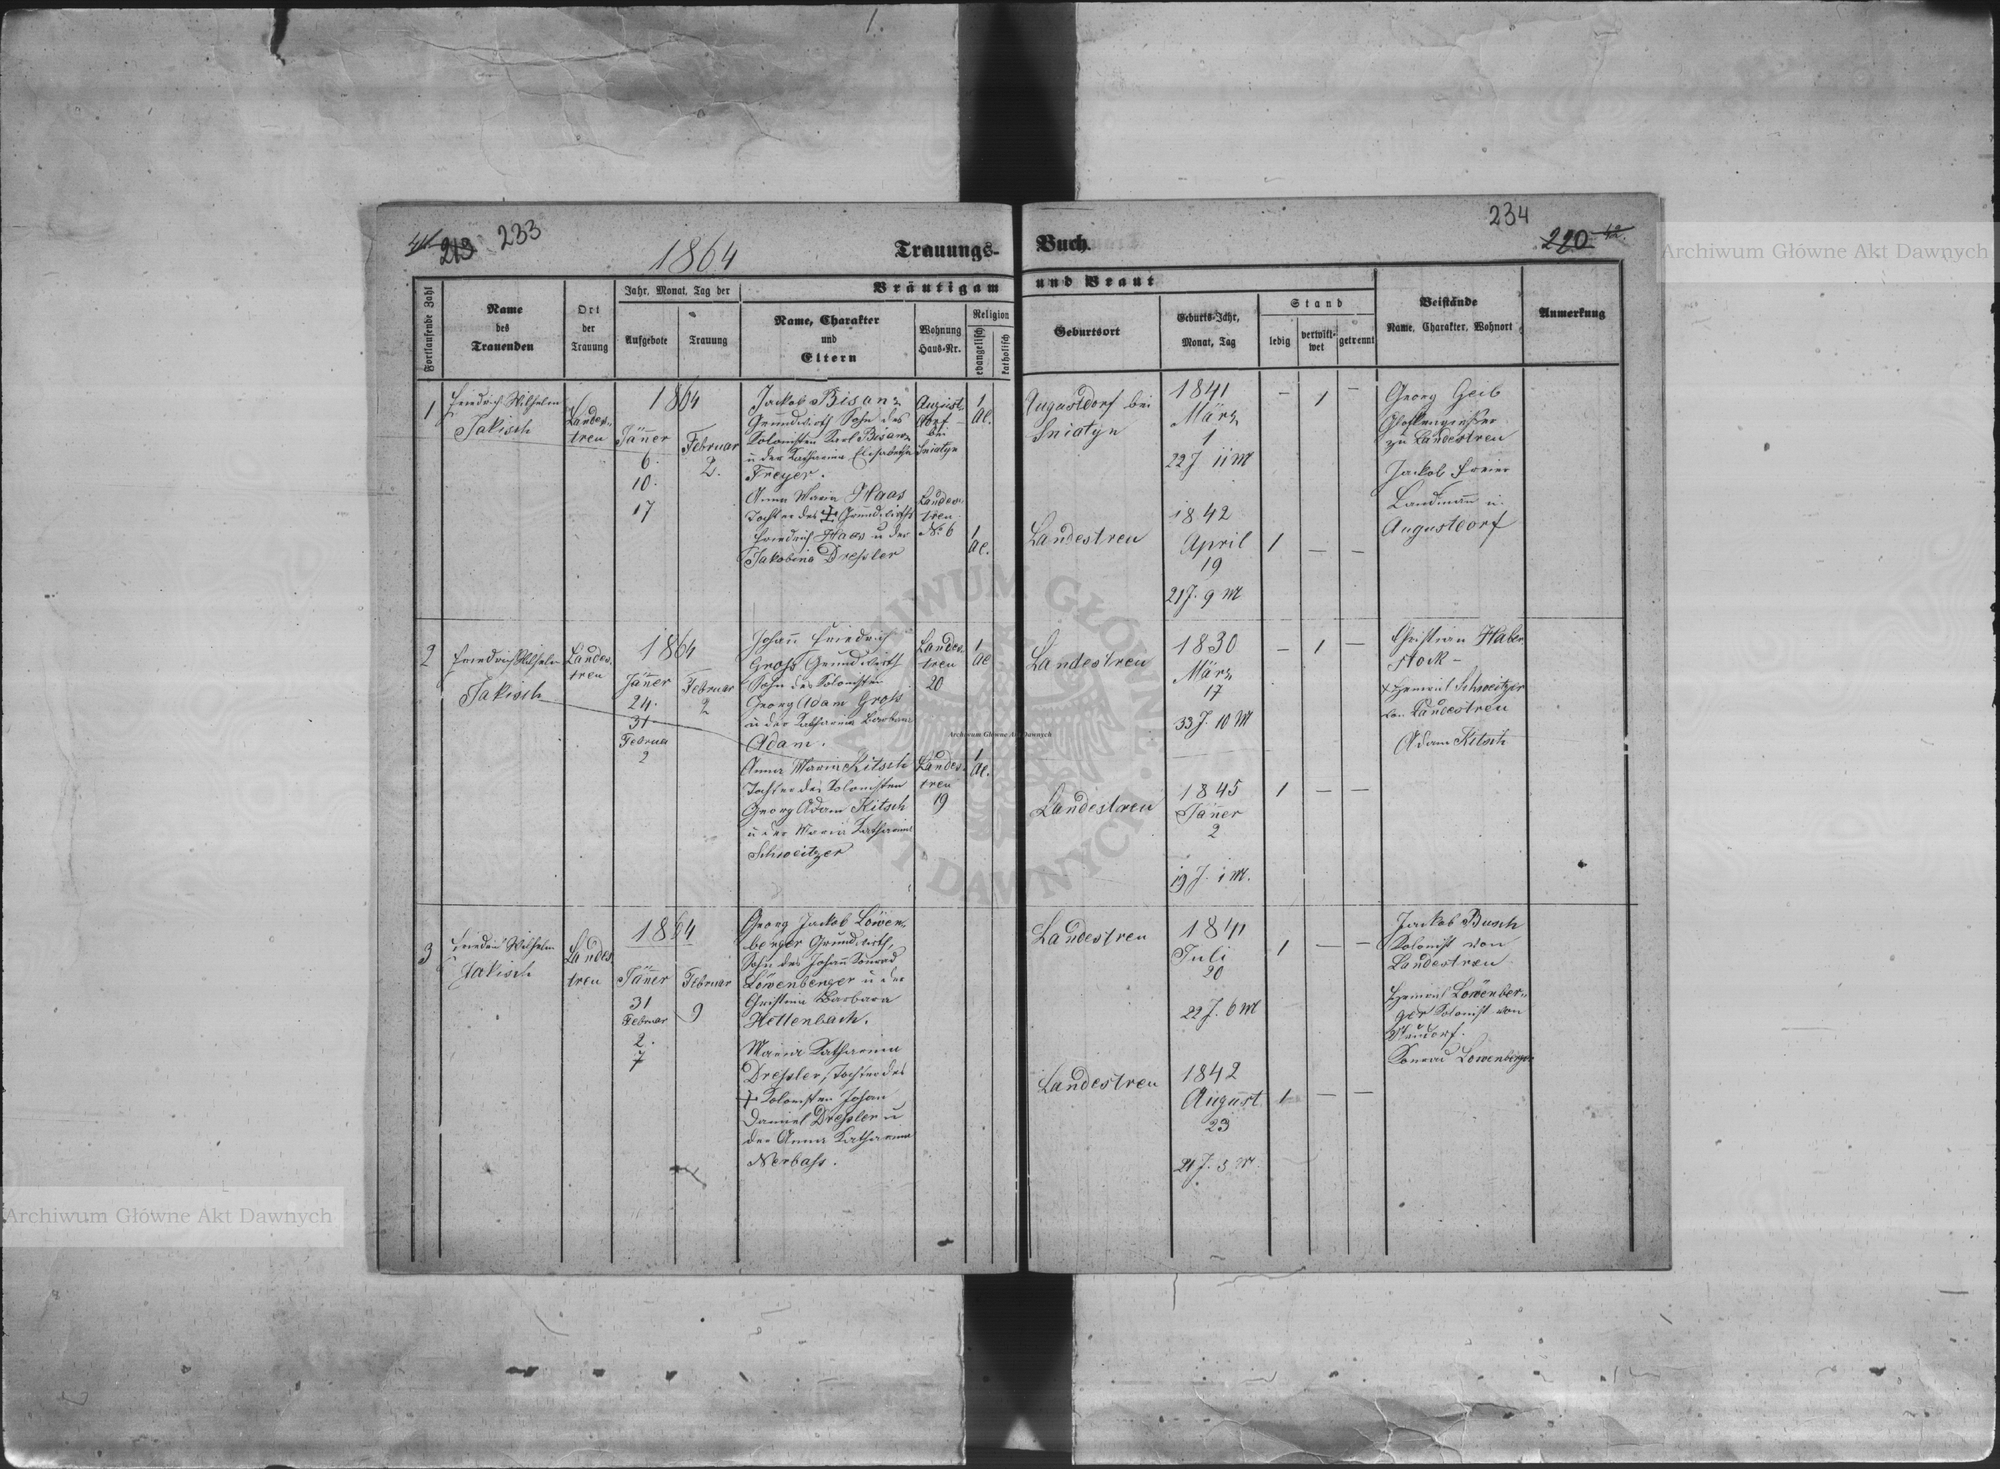 1.
41 213 233
1864
Trauungs-
Buch
234
220 42
Archiwum Główne Akt Dawnych
Fortlaufende Zahl
Name
des
Trauenden
Ort
der
Trauung
Jahr, Monat, Tag der
Aufgebote
Trauung
Bräutigam
Name, Charakter
und
Eltern
Wohnung
Haus-Nr.
Religion
evangelisch
katholisch
und Braut
Geburtsort
Geburts-Jahr,
Monat, Tag
Stand
ledig
verwitt-
wet
getrennt
Beistände
Name, Charakter, Wohnort
Anmerkung
1
Friedrich Wilhelm
Jakisch
Landes-
treu
1864
Jäner
6.
10.
17
Februar
2.
Jackob Bisanz
Grundwirth Sohn des
Kolonisten Karl Bisanz
u der Katharina Elisabetha
Freyer.
Anna Maria Haas
Tochter des + Grundwirths
Friedrich Haas u der
Jakobina Dreßler
August-
dorf
bei
Sniatyn
Landes-
treu
No. 6
1
1
Augustdorf bei
Sniatyn
Landestreu
1841
März
1
22 J. 11 M
1842
April
19
21 J. 9 M
– 1 –
1 – –
Georg Geib
zu Landestreu
Jackob Freier
Landmann in
Augustdorf
2
Friedrich Wilhelm
Jakisch
Landes-
treu
1864
Jäner
24.
31
Februar
2
Februar
2
Johann Friedrich
Groß Grundwirth
Sohn des Kolonisten
Georg Adam Groß
u der Katharina Barbara
Adam.
Anna Maria Kitsch
Tochter des Kolonisten
Georg Adam Kitsch
u der Maria Katharina
Schweitzer
Landes-
treu
20
Landes-
treu
19
1
1
Landestreu
Landestreu
1830
März
17
33 J. 10 M
1845
Jäner
2
19 J. 1 M.
– 1 –
1 – –
Christian Haber-
stock –
Heinrich Schweitzer
von Landestreu
Adam Kitsch
3
Friedrich Wilhelm
Jakisch
Landes-
treu
1864
Jäner
31
Februar
2.
7
Februar
9
Georg Jackob Löwen-
berger Grundwirth,
Sohn des Johann Konrad
Löwenberger u der
Christina Barbara
Hettenbach.
Maria Katharina
Dreßler, Tochter des
+ Kolonisten Johan
Daniel Dreßler u
der Anna Katharina
Nerbaß.
Landestreu
Landestreu
1841
Juli
20
22 J. 6 M
1842
August
23
21 J. 5 M.
1 – –
1 – –
Jackob Busch
Kolonist von
Landestreu
Heinrich Löwenber-
ger Kolonist von
Konrad Löwenberger
Archiwum Główne Akt Dawnych
ARCHIWUM GŁÓWNE AKT DAWNYCH
Archiwum Główne Akt Dawnych